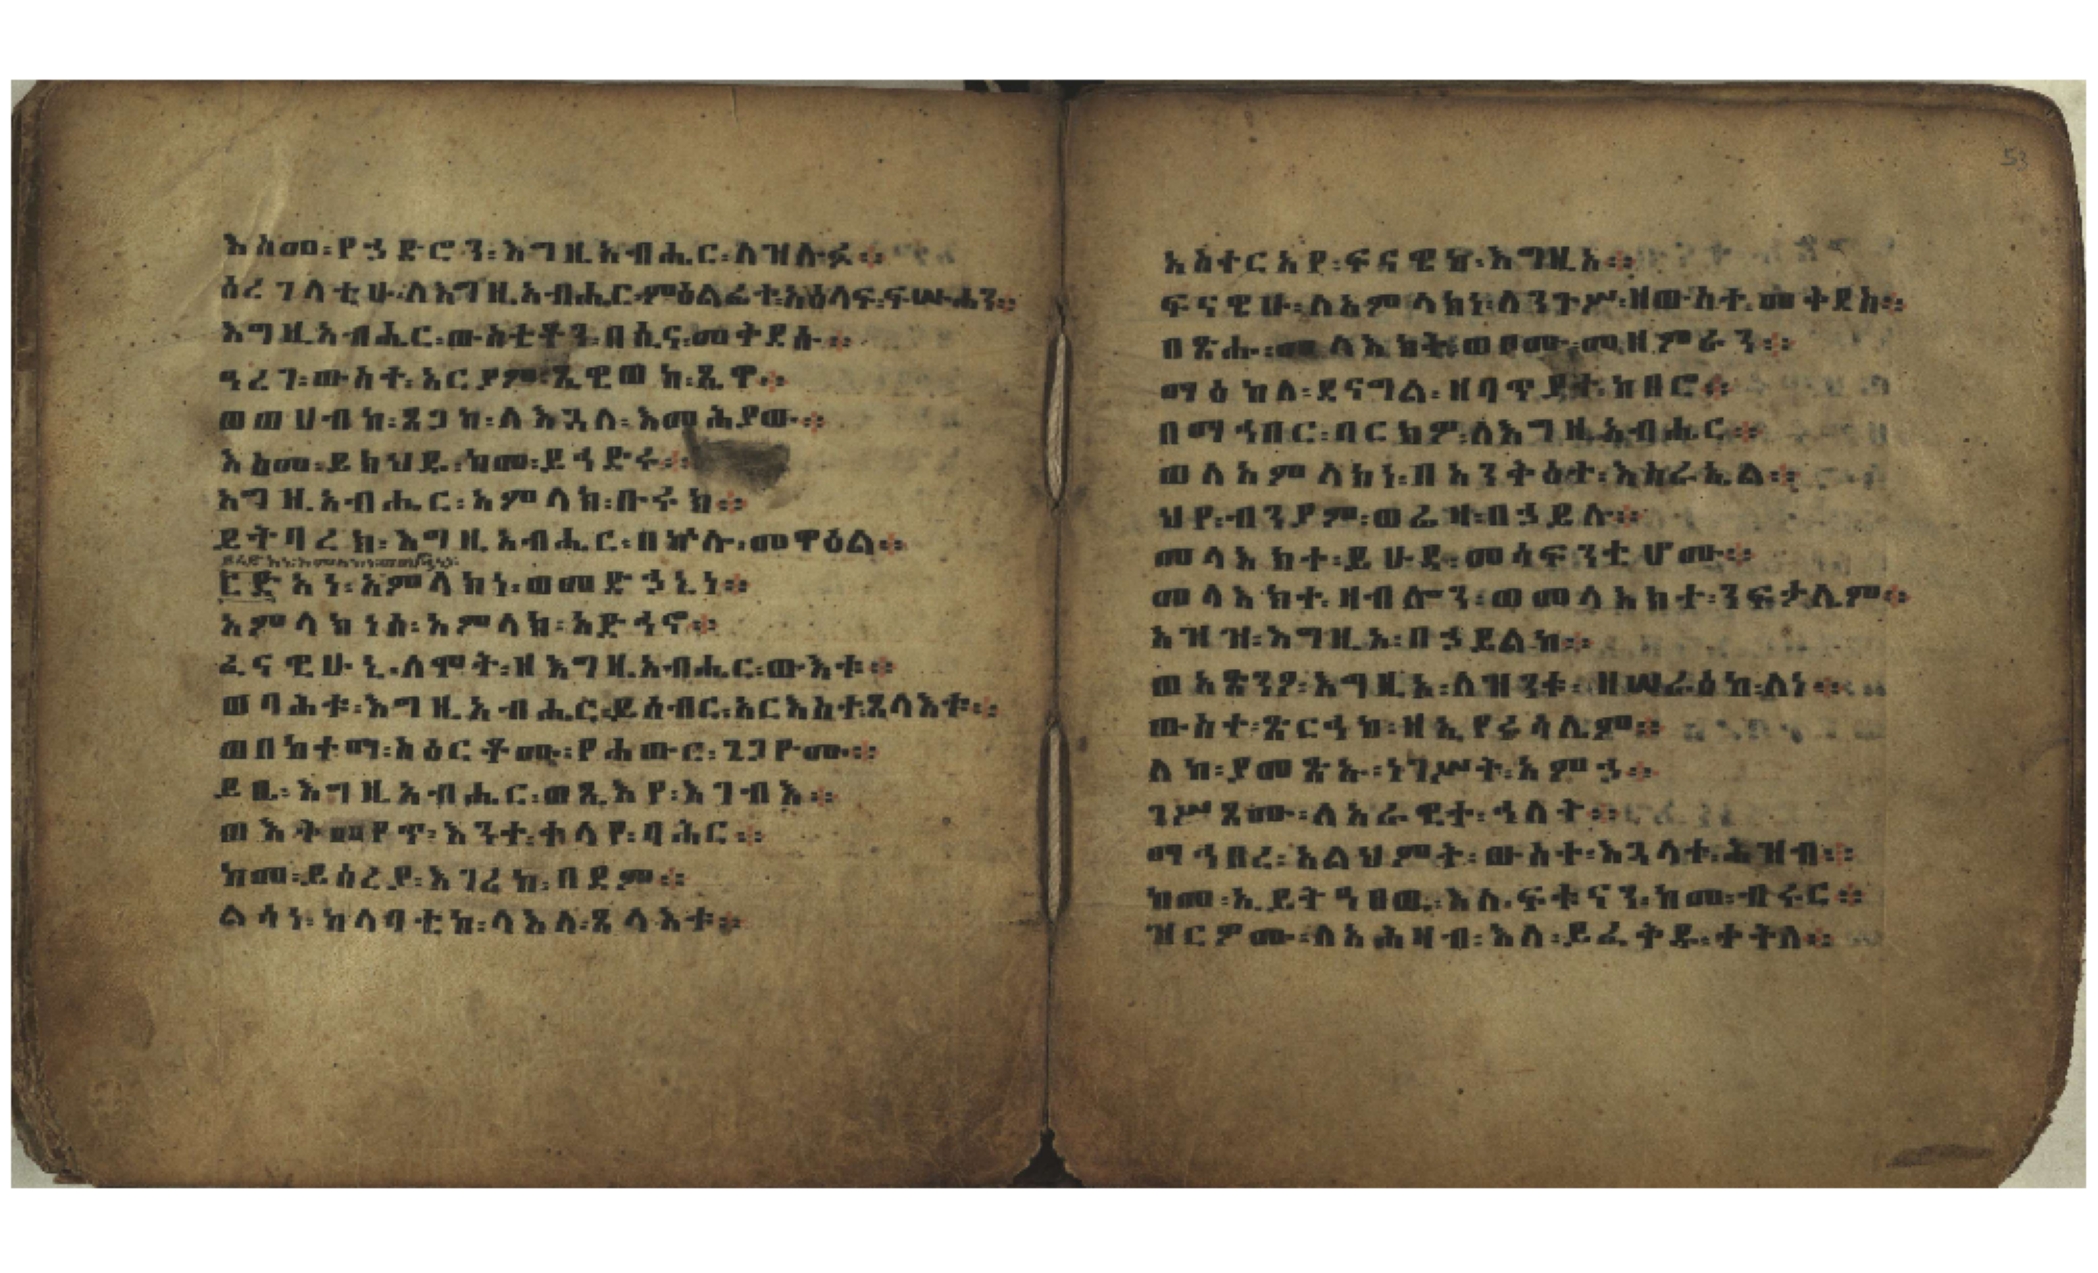 እስመ፡የኃድሮን፡እግዚአብሔር፡ለዝሉፉ።
ሰረገላቲሁ፡ለእግዚአብሔር፡ምዕልፊተ፡አዕላፍ፡ፍሡሓን።
እግዚአብሔር፡ውስቴቶን፡በሲና፡መቅደሱ።
ዓረገ፡ውስተ፡አርያም፡ፂዊወከ፡ፂዋ።
ወወሀብከ፡ጸጋከ፡ለእጓለ፡እመሕያው።
እስመ፡ይክህዱ፡ከመ፡ይኅድሩ።
እግዚአብሔር፡አምላክ፡ቡሩክ።
ይትባረክ፡እግዚአብሔር፡በኵሉ፡መዋዕል።
ርድአነ፡አምላክነ፡ወመድኃኒነ።
አምላክነሰ፡አምላክ፡አድኅኖ።
ፈናዊሁኒ፡ለሞት፡ዘእግዚአብሔር፡ውእቱ።
ወባሕቱ፡እግዚአብሔር፡ይሰብር፡አርእስተ፡ጸላእቱ።
ወበከተማ፡ስዕርቶሙ፡የሐውሮ፡ጌጋዮሙ።
ይቤ፡እግዚአብሔር፡ወጺእየ፡እገብእ።
ወእትመየጥ፡እንተ፡ቀላየ፡ባሕር።
ከመ፡ይዕረይ፡እገሪከ፡በደም።
ልሳነ፡ከላባቲከ፡ላእለ፡ጸላእቱ።
አስተርአየ፡ፍናዊከ፡እግዚአ።
ፍናዊሁ፡ለአምላክነ፡ለንጉሥ፡ዘውስተ፡መቅደስ።
በጽሑ፡መላእክት፡ወየሙ፡መዘምራን።
ማዕከለ፡ደናግል፡ዘባጥያት፡ከበሮ።
በማኅበር፡ባርክዎ፡ለእግዚአብሔር።
ወለአምላክነ፡በአንቅዕተ፡እስራኤል።
ህየ፡ብንያም፡ወሬዛ፡በኃይሉ።
መላእክተ፡ይሁዳ፡መሳፍንቲሆሙ።
መላእክተ፡ዛብሎን፡ወመላእክተ፡ንፍታሌም።
አዝዝ፡እግዚአ፡በኃይልከ።
ወአጽንዖ፡እግዚአ፡ለዝንቱ፡ዘሠራዕከ፡ለነ።
ውስተ፡ጽርሓከ፡ዘኢየሩሳሌም።
ለከ፡ያመጽኡ፡ነገሥት፡አምኃ።
ገሥጾሙ፡ለአራዊተ፡ኀለት።
ማኅበረ፡አልህምት፡ውስተ፡እጓላተ፡ሕዝብ።
ከመ፡ኢይትዓፀዉ፡እለ፡ፍቱናን፡ከመ፡ብሩር።
ዝርዎሙ፡ለአሕዛብ፡እለ፡ይፈቅዱ፡ቀትለ።